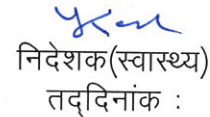 निदेशक(स्वास्थ्य)
तद्दिनांक :